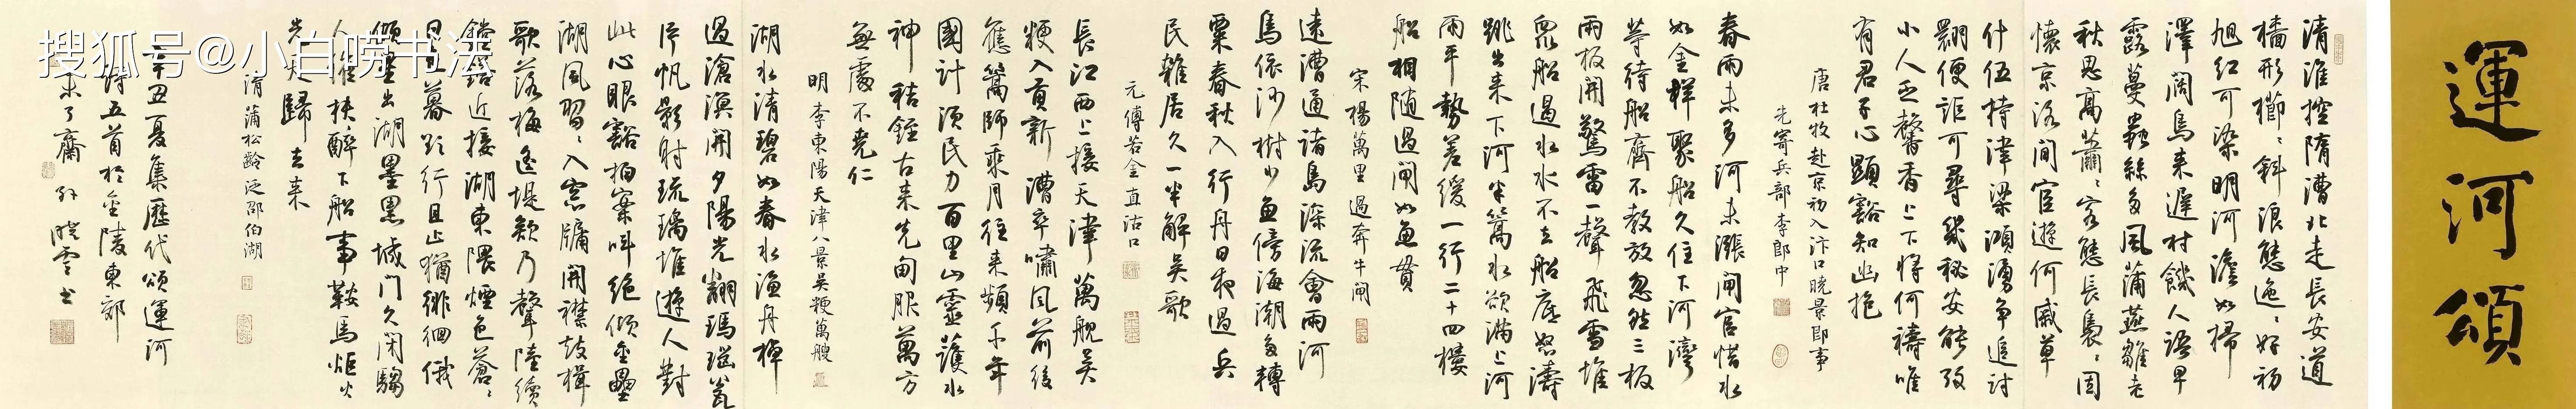 運河頌
清淮控隋漕北走長安道
檣形櫛〻斜浪態迤〻好初
旭红可染明河澹如掃
澤闊鳥来遲村饑人语早
露蔓蟲絲多風蒲燕雛老
秋思高蕭〻客態長裊〻因
懷京洛間宦遊何戚草
什伍持津梁澒湧争追討
翾便詎可尋幾秘安能攷
小人乏馨香上下将何禱唯
有君子心顯豁知幽抱
唐杜牧赴京初入汴口晓景即事
先寄兵部李郎中
春雨未多河未漲閘官惜水
如金樣聚船久住下河灣
等待船齊不教放忽然三板
兩板開驚雷一聲飛雪堆
衆船過水水不去船底怒濤
跳出来下河半篙水欲滿上河
兩平勢差缓一行二十四樓
船相随過閘如魚貫
宋楊萬里過奔牛閘
遠漕通諸島深流會兩河
鳥依沙樹少魚傍海潮多轉
粟春秋入行舟日夜過兵
民雜居久一半解吴歌
元傅若金直沽口
長江西上接天津萬舰吴
粳入貢新漕卒嘯風前後
應篙師乘月往来頻千年
國計須民力百里山靈護水
神秸銍古来先甸服萬方
無處不堯仁
明李東陽天津八景吴粳萬艘
湖水清碧如春水漁舟棹
過滄溟開夕陽光翻瑪瑙瓮
片帆影射琉璃堆遊人對
此心眼豁拍案叫絶倾金罍
湖風習〻入窓牖開襟鼓楫
歌落梅遙堤欸乃聲陸續
近接湖東隈煙色蒼〻
日且暮欲行且止猶徘徊俄
頃望出湖墨黑城門久闭騶
人催扶醉下船事鞍馬炬火
光天歸去来
清蒲松齡泛邵伯湖
辛丑夏集歷代頌運河
詩五首於金陵東郊
未了齋 孙晓雲书
搜狐号@小白唠书法